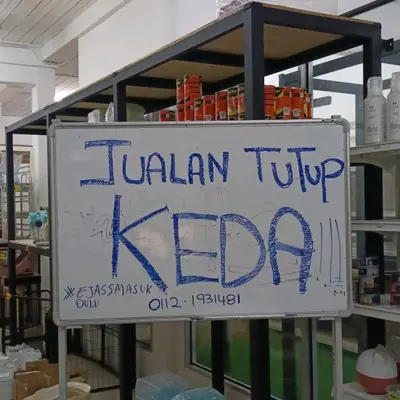 JUALAN TUTUP
KEDAI!!!
*EJASSMASUK
DULU
0112-1931481